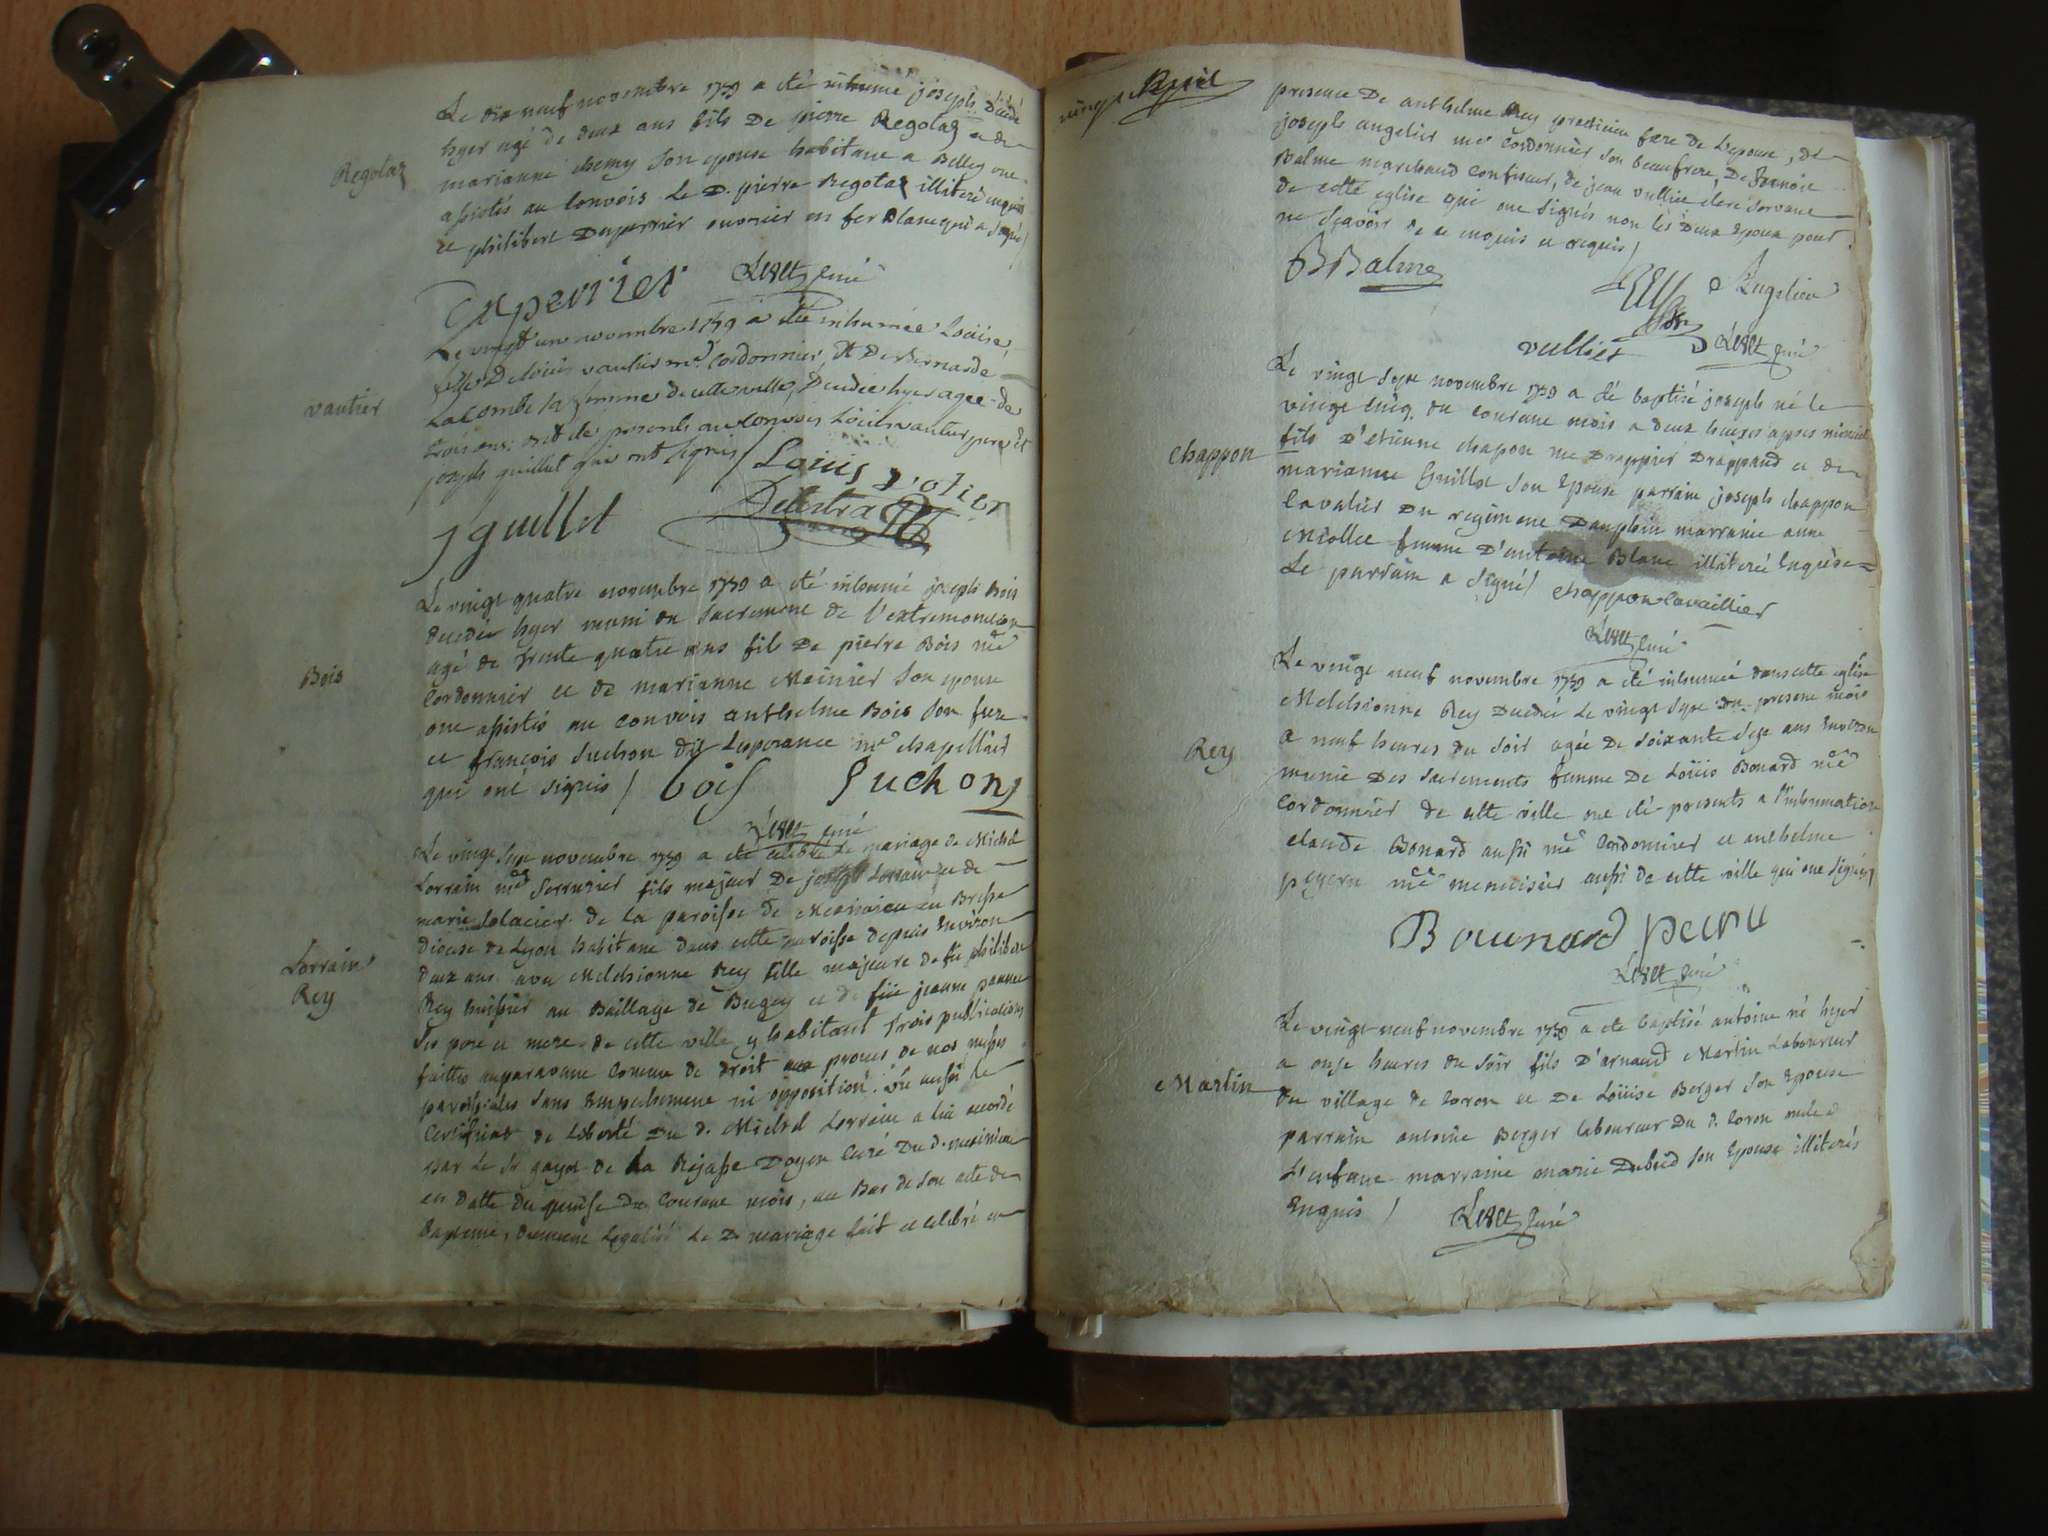 Le dix neuf novembre 1759 a eté inhumé joseph Décédé
hyer agé de deux ans fils De pierre Regotaz et de
marianne chemy son epouse habitant a Belley ont
assistés au Convois Le D. pierre Regotaz illiteré enquis
et philibert Duperrier ouvrier en fer blanc qui a signé /
Regotaz
Duperrier
curé
Le vingt un novembre 1759 a été inhumée Louise
fille De Louis vautier me. Cordonnier et De Bernarde
Lacombe sa femme de cette ville, Décédée hyer agee de
trois ans; ont été presents au convois Louis vautier pere et
joseph guillet qui ont signés /
vautier
Louis votier
jguillet
Le vingt quatre novembre 1759 a eté inhumé joseph Bois
decedé hyer muni du sacrement de l'extremonction
agé de trente quatre ans fils De pierre Bois me
Cordonnier et de marianne Meinier son epouse
ont assistés au convois anthelme Bois son frere
et françois Suchon dit Lesperance me chapellier
qui ont signés /
Bois
bois
Suchon
curé
Le vingt sept novembre 1759 a été celebré le mariage de Michel
Lorrain me serrurier fils majeur De joseph Lorrain et de
marie de la paroisse de en Bresse
diocese de Lyon habitant dans cette paroisse depuis environ
deux ans avec Melchionne Rey fille majeure de fu philibert
Rey huissier au Bailliage de Bugey et de füe jeanne
ses pere et mere de cette ville y habitant trois publications
faittes auparavant comme de droit aux prones de nos messes
paroissiales sans empechement ni opposition. Vu aussi le
Certificat de Liberté Du d. Michel Lorrain a lui accordé
par Le Sr de La Doyen Curé Du d.
en datte du quinse Du Courant mois, au Bas de son acte de
Bapteme, Legalisé Le D. mariage fait et celebré en
Lorrain
Rey
presence De anthelme Rey praticien frere de L'epouse, de
joseph angelier me Cordonnier son beaufrere, De Benoit
Balme marchand Confiseur, de jean vulliet clerc servant
de cette eglise qui ont signés non les Deux epoux pour
ne sçavoir de ce enquis et requis /
BBalme
Rey
Angelier
vulliet
curé
Le vingt sept novembre 1759 a été baptisé joseph né le
vingt cinq du courant mois a deux heures apres minuit
fils D'etienne chapon me Drappier Drappand et de
marianne Guillot son Epouse parrain joseph chappon
Cavalier Du regiment Dauphin marraine anne
Miollet femme D'antoine Blanc illiterée Enquise
Le parrain a signé /
chappon
chappon cavallier
curé
Le vingt neuf novembre 1759 a eté inhumée dans cette eglise
Melchionne Rey Decedée Le vingt sept du present mois
a neuf heures du soir agée De soixante sept ans Environ
munie Des sacrements femme De Loüis Bonard me
Cordonnier de cette ville ont eté presents a l'inhumation
claude Bonard aussi me Cordonnier et anthelme
peyeru me menuisier aussi de cette ville qui ont signés /
Rey
Bounard
curé
Le vingt neuf novembre 1759 a eté baptisé antoine né hyer
a onze heures du soir fils D'arnaud Martin Laboureur
du village de Coron et De Loüise Berger son Epouse
parrain antoine Berger laboureur Du d. Coron oncle a
L'enfant marraine marie Dubud son Epouse illiterés
Enquis /
Martin
curé